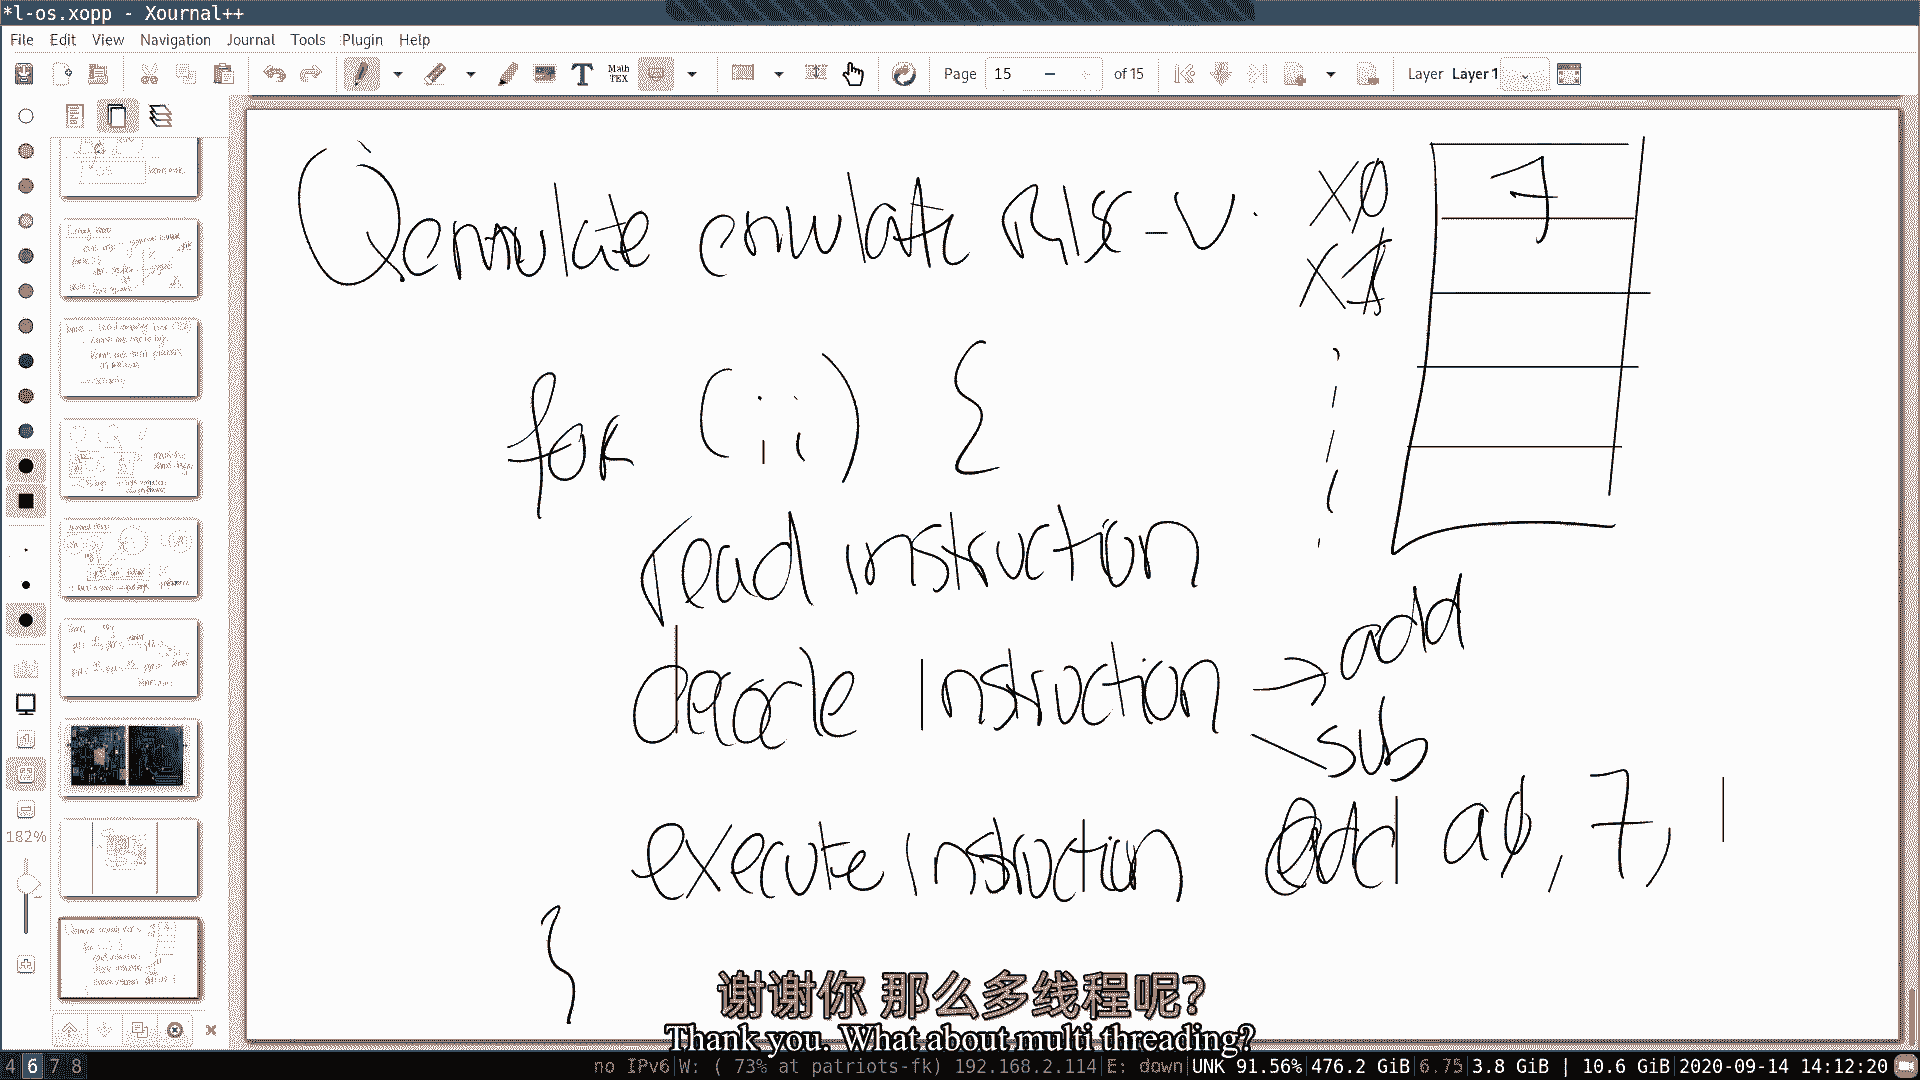 *l-os.xopp - Xournal++
File Edit View Navigation Journal Tools Plugin Help
Math TEX
Page 15 of 15 Layer Layer 1
Qemulate emulate RISC-V.
x0
7
x1
for (;;) {
read instruction
decode instruction → add
sub
execute instruction add a0, 7, 1
}
182%
谢谢你 那么多线程呢?
Thank you. What about multi threading?
4 6 7 8 no IPv6 W: ( 73% at patriots-fk) 192.168.2.114 E: down UNK 91.56% 476.2 GiB 6.75 3.8 GiB | 10.6 GiB 2020-09-14 14:12:20